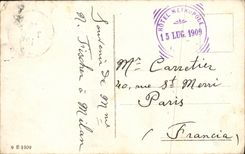 HOTEL METROPOLE
15 LUG. 1909
Souvenir de Mme
A. Fischer à Milan
Mr Carretier
40, rue St Merri
Paris
(Francia)
9 E 1909